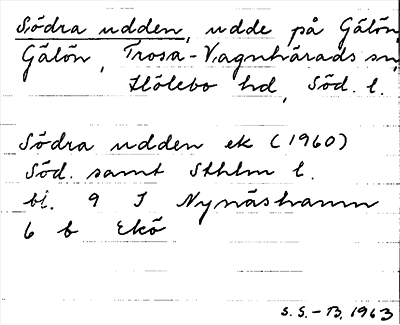 Södra udden, udde på Gålön,
Gålön, Trosa-Vagnhärads sn,
Hölebo hd, Söd. l.
Södra udden ek (1960)
Söd. samt Sthlm l.
bl. 9 I Nynäshamn
6 b Ekö
S. S.-B. 1963